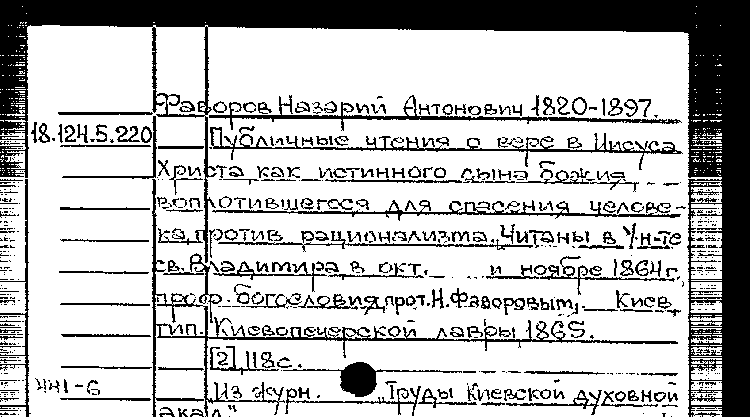 Фаворов, Назарий Антонович, 1820-1897.
18.124.5.220 Публичные чтения о вере в Иисуса
Христа, как истинного сына божия,
воплотившегося для спасения челове-
ка, против рационализма. Читаны в Ун-те
св. Владимира в окт. и ноябре 1864 г.
проф. богословия, прот. Н. Фаворовым. Киев,
тип. Киевопечерской лавры, 1865.
[2], 118 с.
441-6 Из журн. "Труды Киевской духовной
акад."